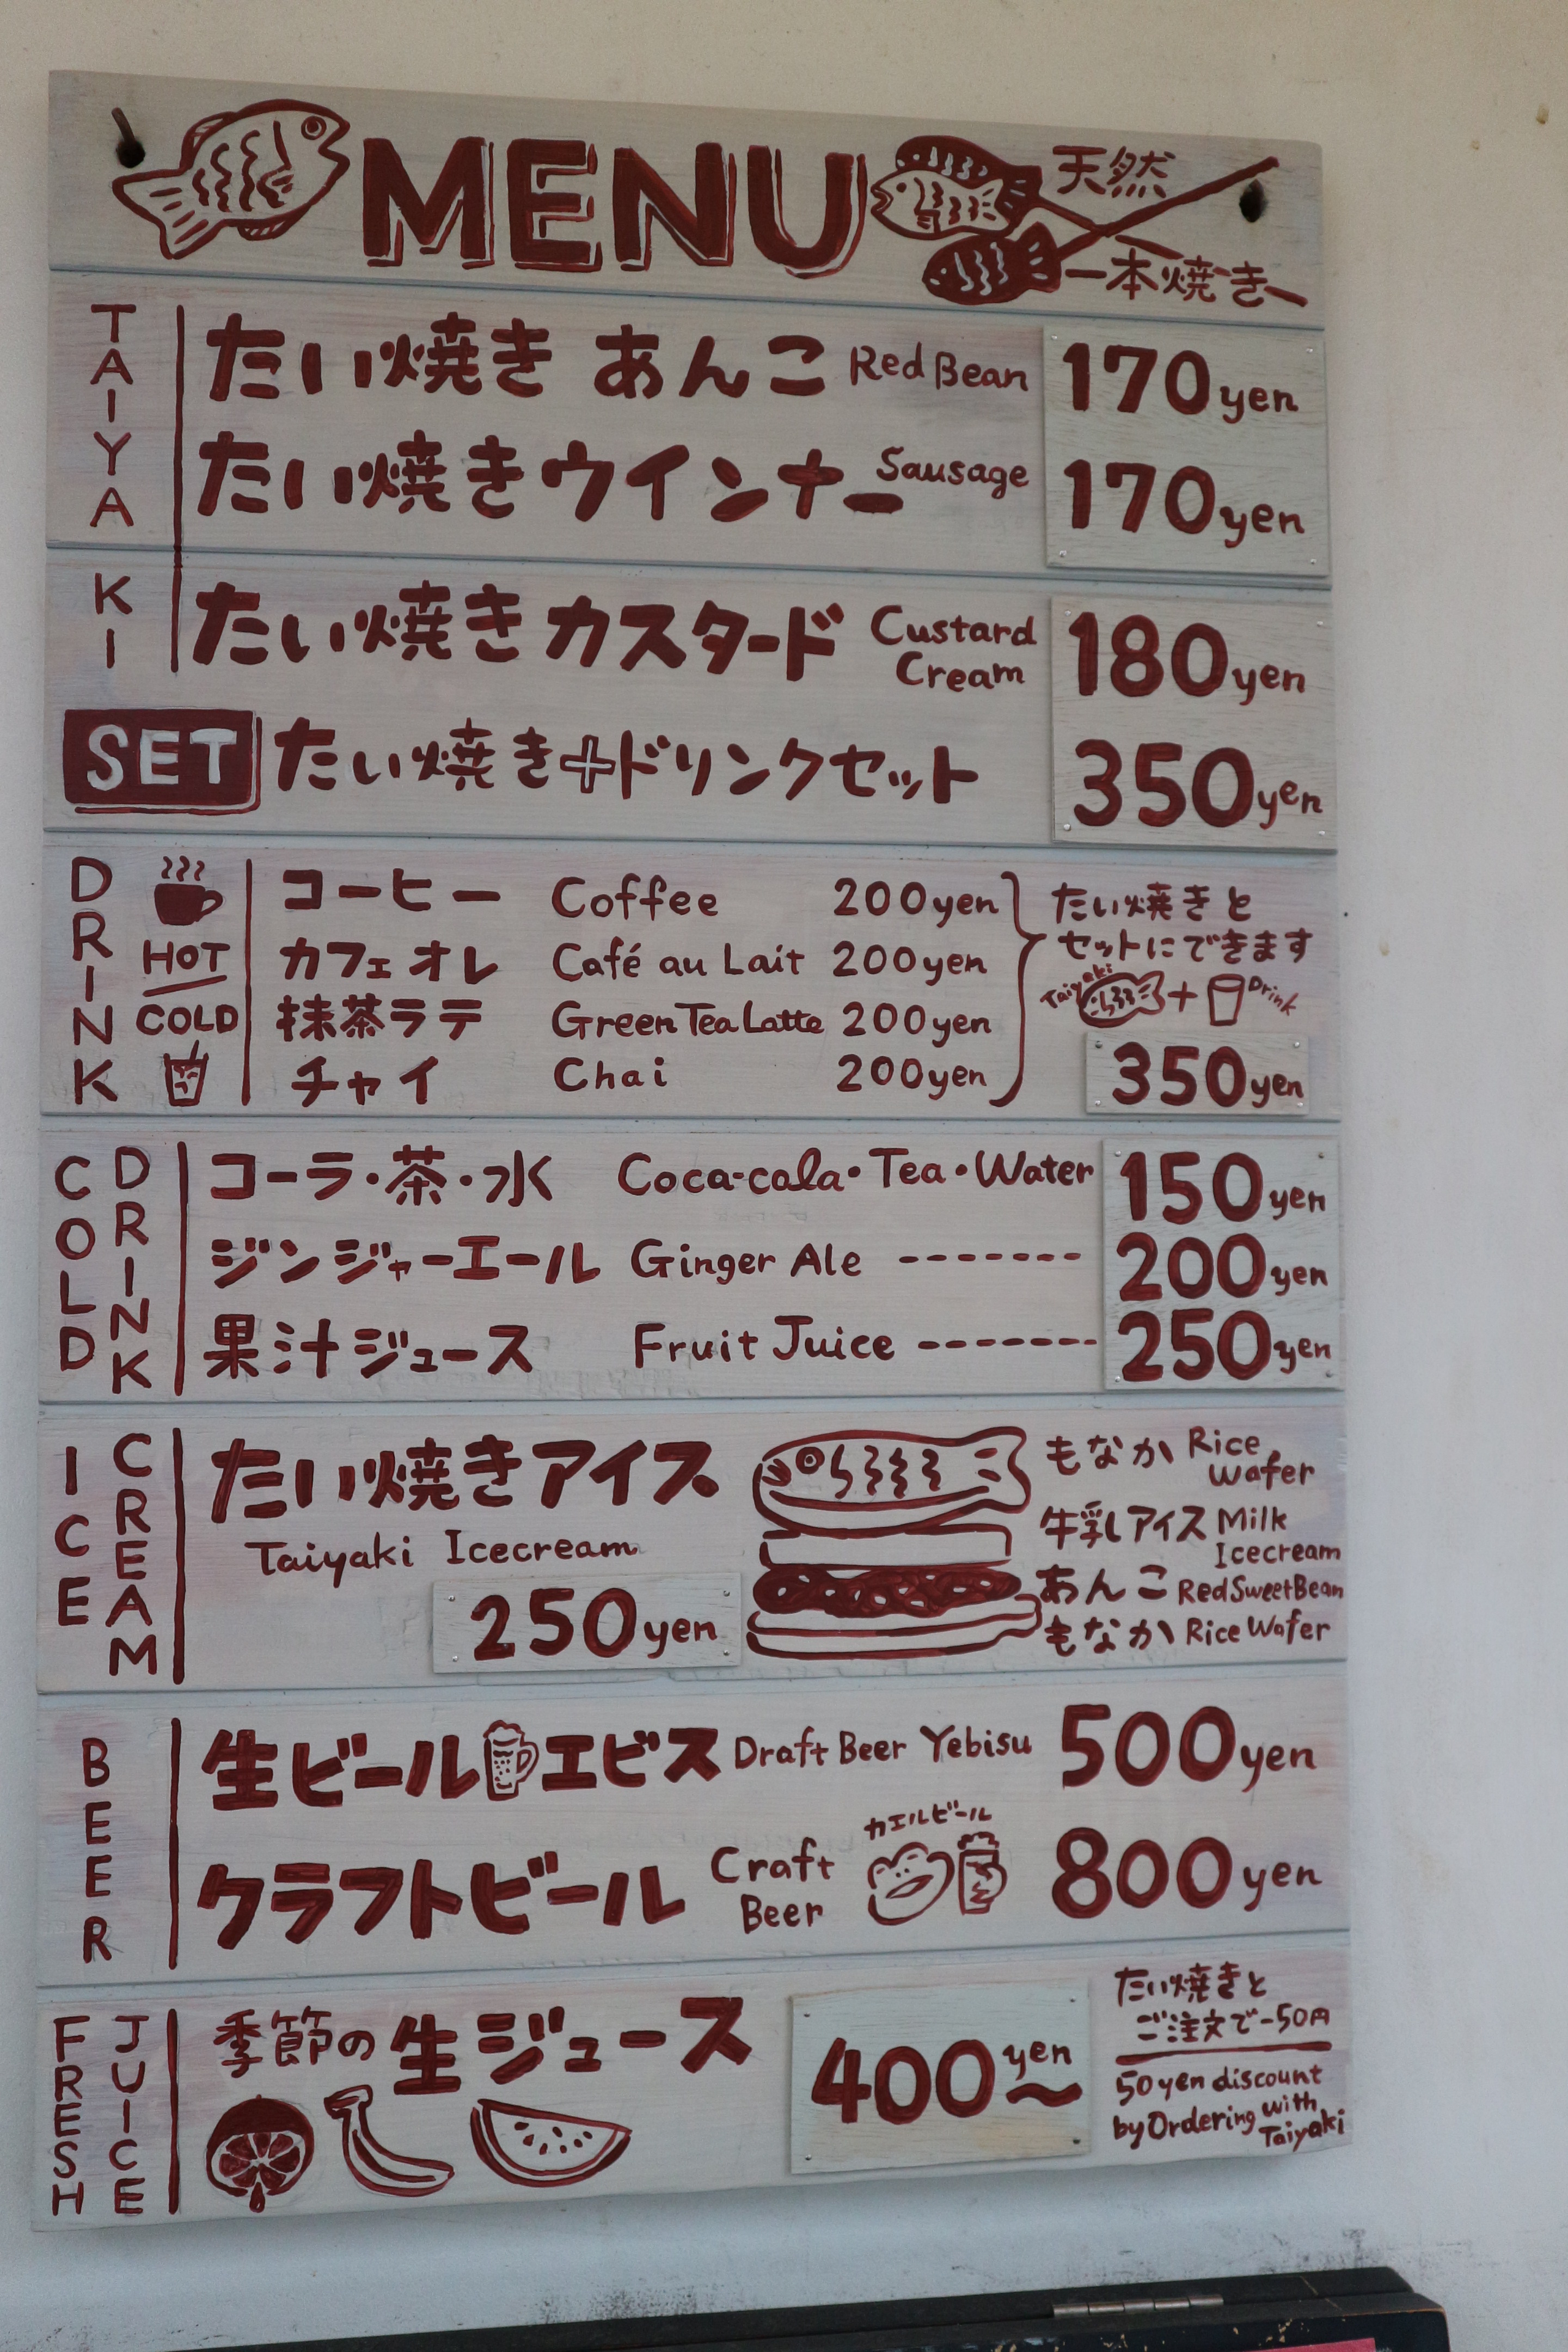 MENU
天然
一本焼き
TAIYAKI
たい焼き あんこ Red Bean 170yen
たい焼きウインナー Sausage 170yen
たい焼きカスタード Custard Cream 180yen
SET たい焼き+ドリンクセット 350yen
DRINK
HOT
COLD
コーヒー Coffee 200yen
カフェオレ Café au Lait 200yen
抹茶ラテ Green Tea Latte 200yen
チャイ Chai 200yen
たい焼きと
セットにできます
Taiyaki + Drink
350yen
COLD DRINK
コーラ・茶・水 Coca-cola・Tea・Water 150yen
ジンジャーエール Ginger Ale ------- 200yen
果汁ジュース Fruit Juice ------- 250yen
ICE CREAM
たい焼きアイス
Taiyaki Icecream
250yen
もなか Rice Wafer
牛乳アイス Milk Icecream
あんこ Red Sweet Bean
もなか Rice Wafer
BEER
生ビール エビス Draft Beer Yebisu 500yen
クラフトビール Craft Beer カエルビール 800yen
FRESH JUICE
季節の生ジュース 400yen〜
たい焼きと
ご注文で-50円
50 yen discount
by Ordering with
Taiyaki